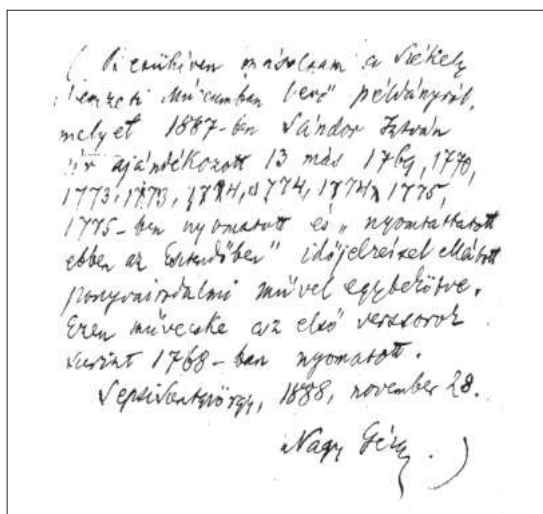 ( Betűhíven másoltam a Székely
Nemzeti Múzeumban levő példányról,
melyet 1887-ben Sándor István
úr ajándékozott 13 más 1769, 1770,
1773, 1773, 1774, 1774, 1774, 1775,
1775-ben nyomatott és „nyomtattatott
ebben az Esztendőben” időjelzéssel ellátott
ponyvairodalmi művel egybekötve.
Ezen művecske az első verssorok
szerint 1768-ban nyomatott.
Sepsiszentgyörgy, 1888, november 28.
Nagy Géza. )